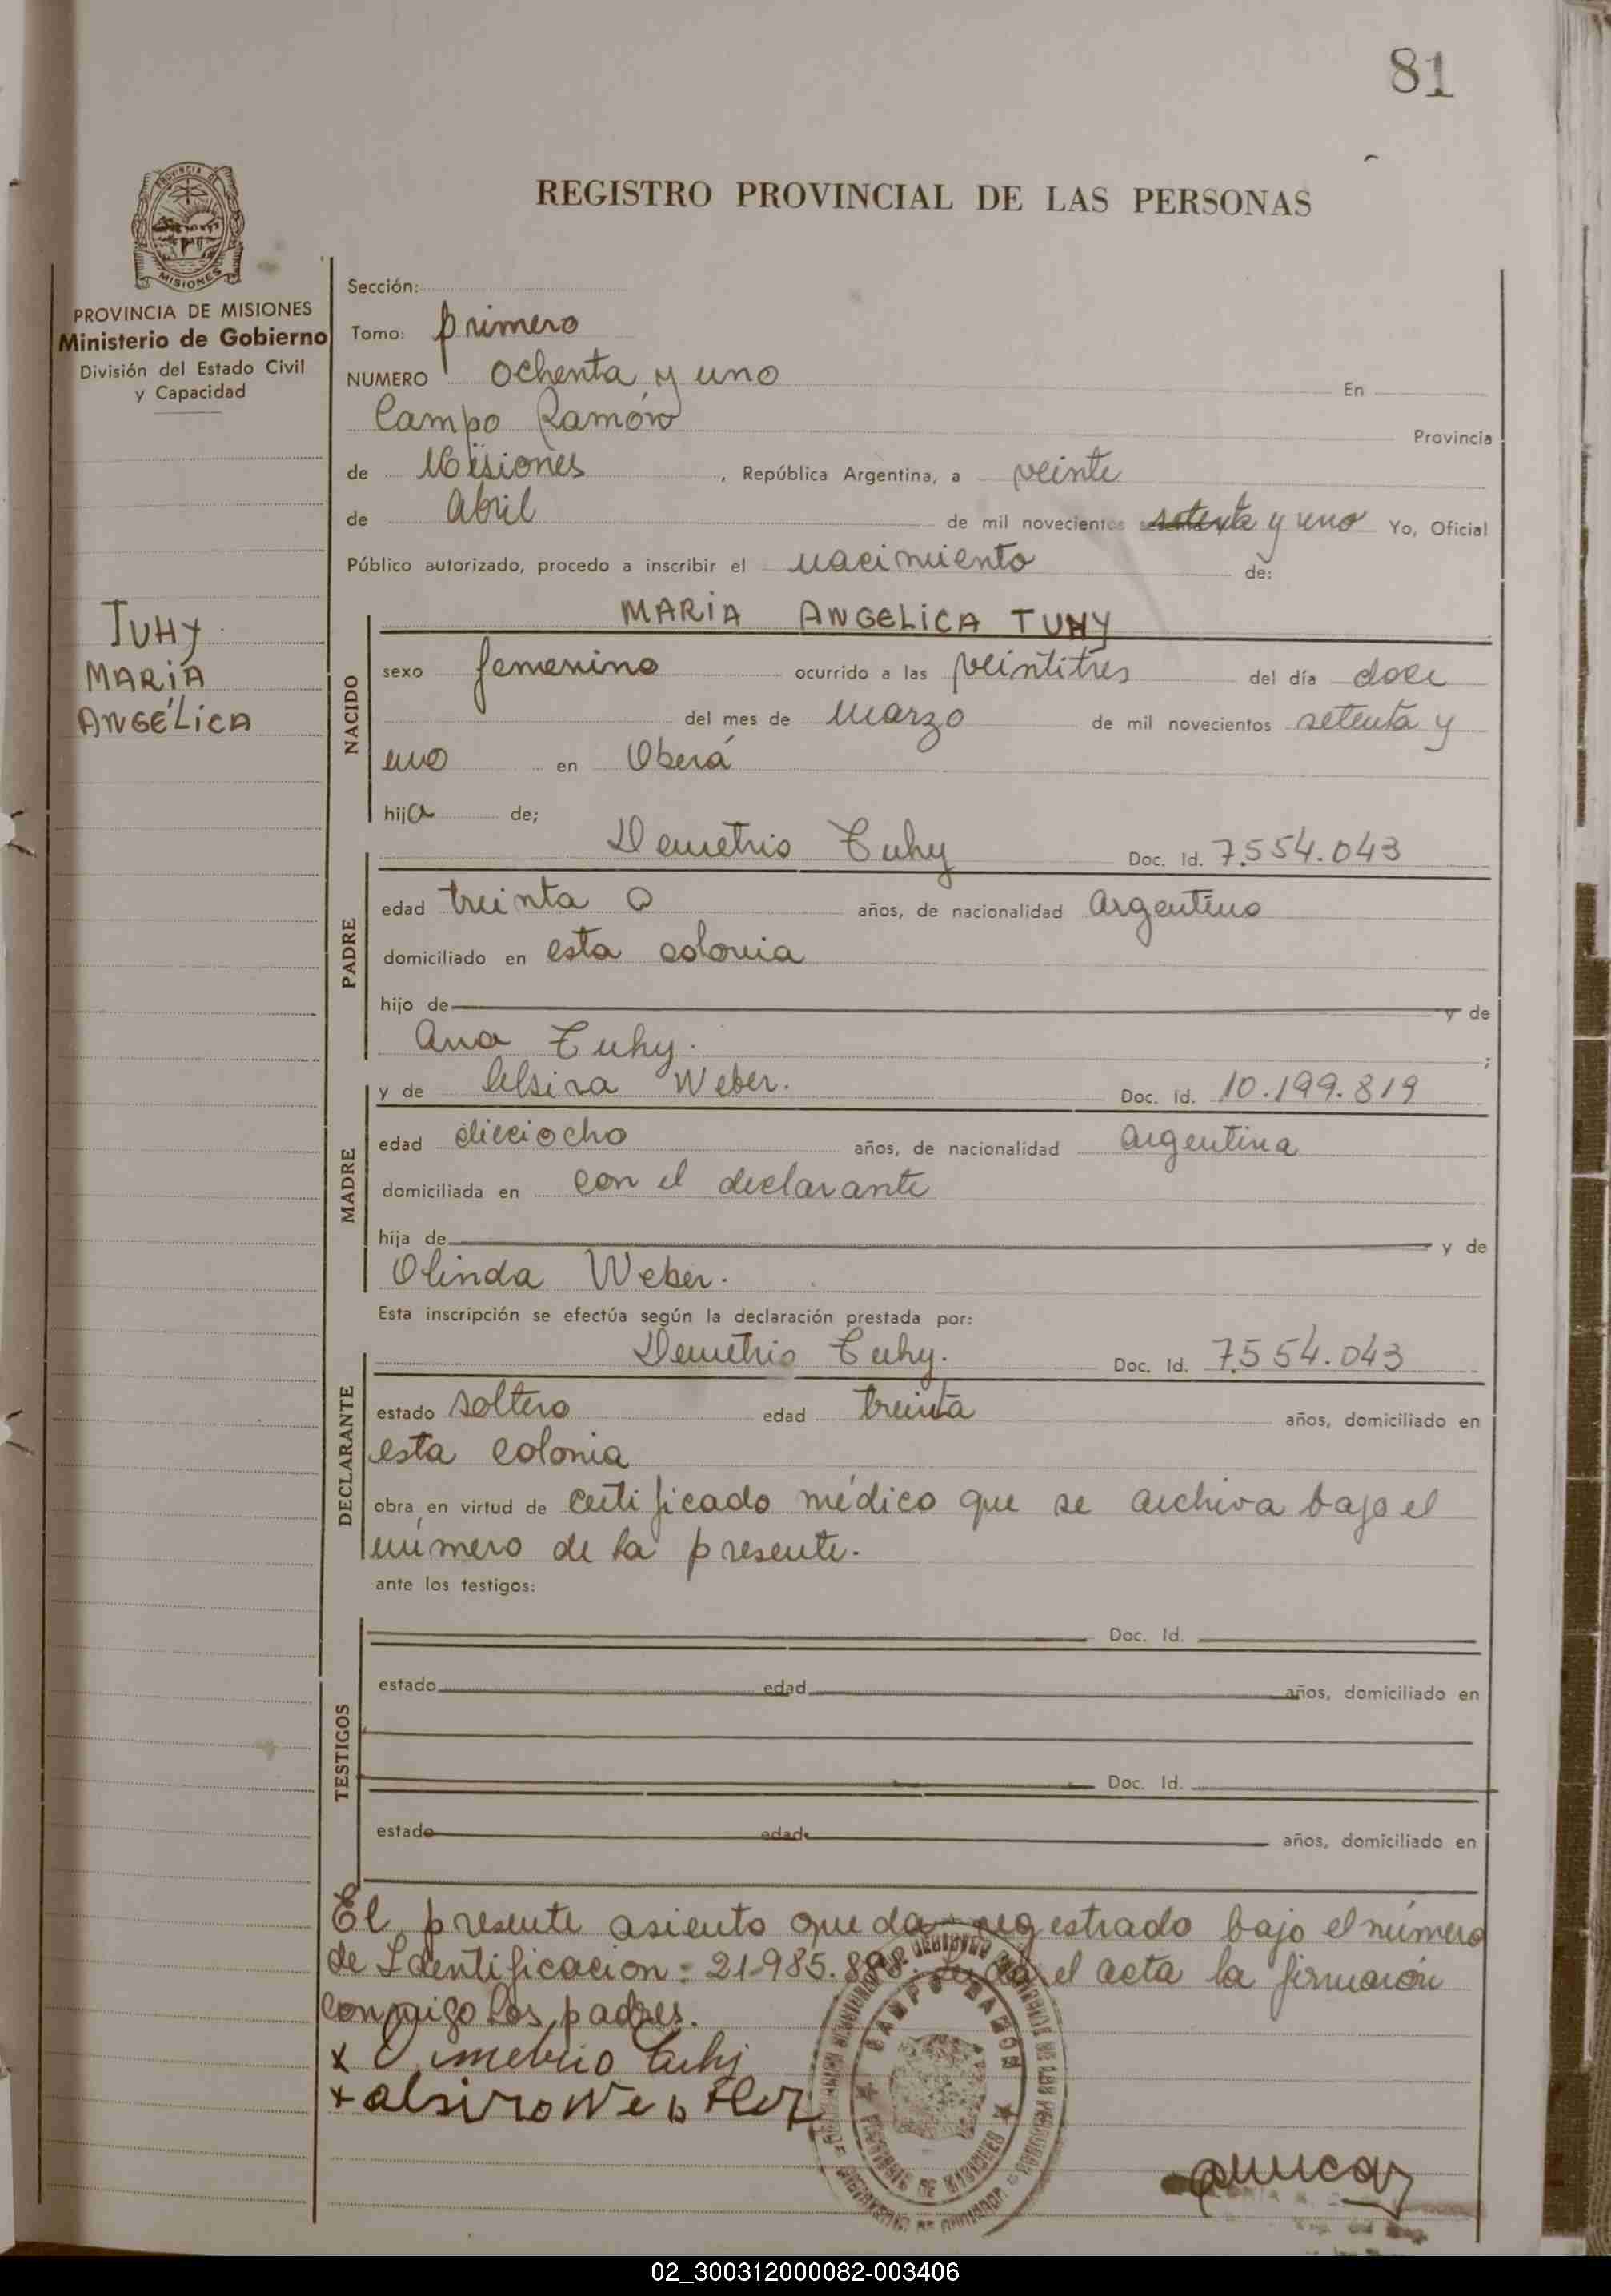 81
REGISTRO PROVINCIAL DE LAS PERSONAS
PROVINCIA DE
MISIONES
PROVINCIA DE MISIONES
Ministerio de Gobierno
División del Estado Civil
y Capacidad
TUHY
MARIA
ANGÉLICA
Sección:
Tomo: primero
NUMERO ochenta y uno En
Campo Ramón Provincia
de Misiones, República Argentina, a veinte
de Abril de mil novecientos setenta y uno Yo, Oficial
Público autorizado, procedo a inscribir el nacimiento de:
NACIDO
MARIA ANGELICA TUHY
sexo femenino ocurrido a las veintitres del día doce
del mes de Marzo de mil novecientos setenta y
uno en Oberá
hija de;
PADRE
Demetrio Tuhy Doc. Id. 7.554.043
edad treinta años, de nacionalidad Argentino
domiciliado en esta colonia
hijo de y de
Ana Tuhy. ;
MADRE
y de Alsira Weber. Doc. Id. 10.199.819
edad dieciocho años, de nacionalidad Argentina
domiciliada en con el declarante
hija de y de
Olinda Weber.
Esta inscripción se efectúa según la declaración prestada por:
DECLARANTE
Demetrio Tuhy. Doc. Id. 7.554.043
estado soltero edad treinta años, domiciliado en
esta colonia
obra en virtud de certificado médico que se archiva bajo el
número de la presente.
ante los testigos:
TESTIGOS
Doc. Id.
estado edad años, domiciliado en
Doc. Id.
estado edad años, domiciliado en
El presente asiento queda registrado bajo el número
de Identificacion: 21.985.888. el acta la firmaron
conmigo los padres.
x Demetrio Tuhy
x alsira Weber
CAMPO RAMÓN
PROVINCIA DE MISIONES
02_300312000082-003406